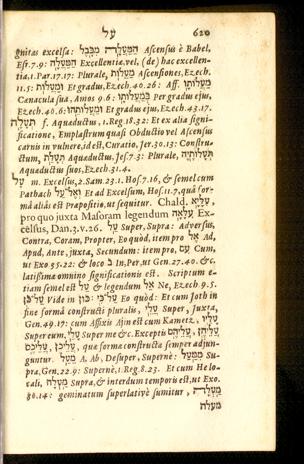 על 620
gnitas excelsa: הַמַּעֲלָה מִבָּבֶל Ascensus è Babel,
Esr. 7.9: הַמַּעֲלָה Excellentiæ vel, (de) hac excellen-
tia, 1. Par. 17.17: Plurale, מַעֲלוֹת Ascensiones, Ezech.
11.5: וּמַעֲלוֹת Et gradus, Ezech. 40.26: Aff.
Cœnacula sua, Amos 9.6: Per gradus ejus,
Ezech. 40.6: Et gradus ejus, Ezech. 43.17.
תְּעָלָה f. Aquæductus, 1. Reg. 18.32: Et ex alia signi-
ficatione, Emplastrum quasi Obductio vel Ascensus
carnis in vulnere, id est, Curatio, Jer. 30.13: Constru-
ctum, תְּעָלַת Aquæductus, Jes. 7.3: Plurale, תְּעָלוֹתֶיהָ
Aquæductus suos, Ezech. 31.4.
עַל m. Excelsus, 2. Sam. 23.1. Hos. 7.16, & semel cum
Pathach וְאֶל־עַל Et ad Excelsum, Hos. 11.7, quâ for-
mâ aliàs est Præpositio, ut sequitur. Chald. עִלָּיָא,
pro quo juxta Masoram legendum עִלָּאָה Ex-
celsus, Dan. 3. v. 26. עַל Super, Supra: Adversus,
Contra, Coram, Propter, Eo quòd, item pro אֶל Ad,
Apud, Ante, juxta, Secundum: item pro, עִם Cum,
ut Exo. 35.22: & loco ב In, Per, ut Gen. 27.40. &c.
latissima omnino significationis est. Scriptum e-
tiam semel est עַל & legendum אֶל Ne, Ezech 9.5.
עַל־כֵּן Vide in כּוּן. עַל־כִּי Eo quòd: Et cum Joth in
fine formâ constructi pluralis, עֲלֵי Super, Juxta,
Gen. 49.17: cum Affixis Ajin est cum Kametz, עָלָיו
Super eum, עָלַי Super me &c. Exceptis עֲלֵיהֶם,
עֲלֵיהֶן, עֲלֵיכֶם, עֲלֵיכֶן, qua forma constructa semper adjun-
guntur. מֵעַל A, Ab, Desuper, Supernè: מִמַּעַל Su-
pra, Gen. 22.9: Supernè, 1. Reg. 8.23. Et cum He lo-
cali, מַעְלָה Supra, & interdum temporis est, ut Exo.
30.14: geminatum superlativè sumitur, מַעְלָה
מעלה